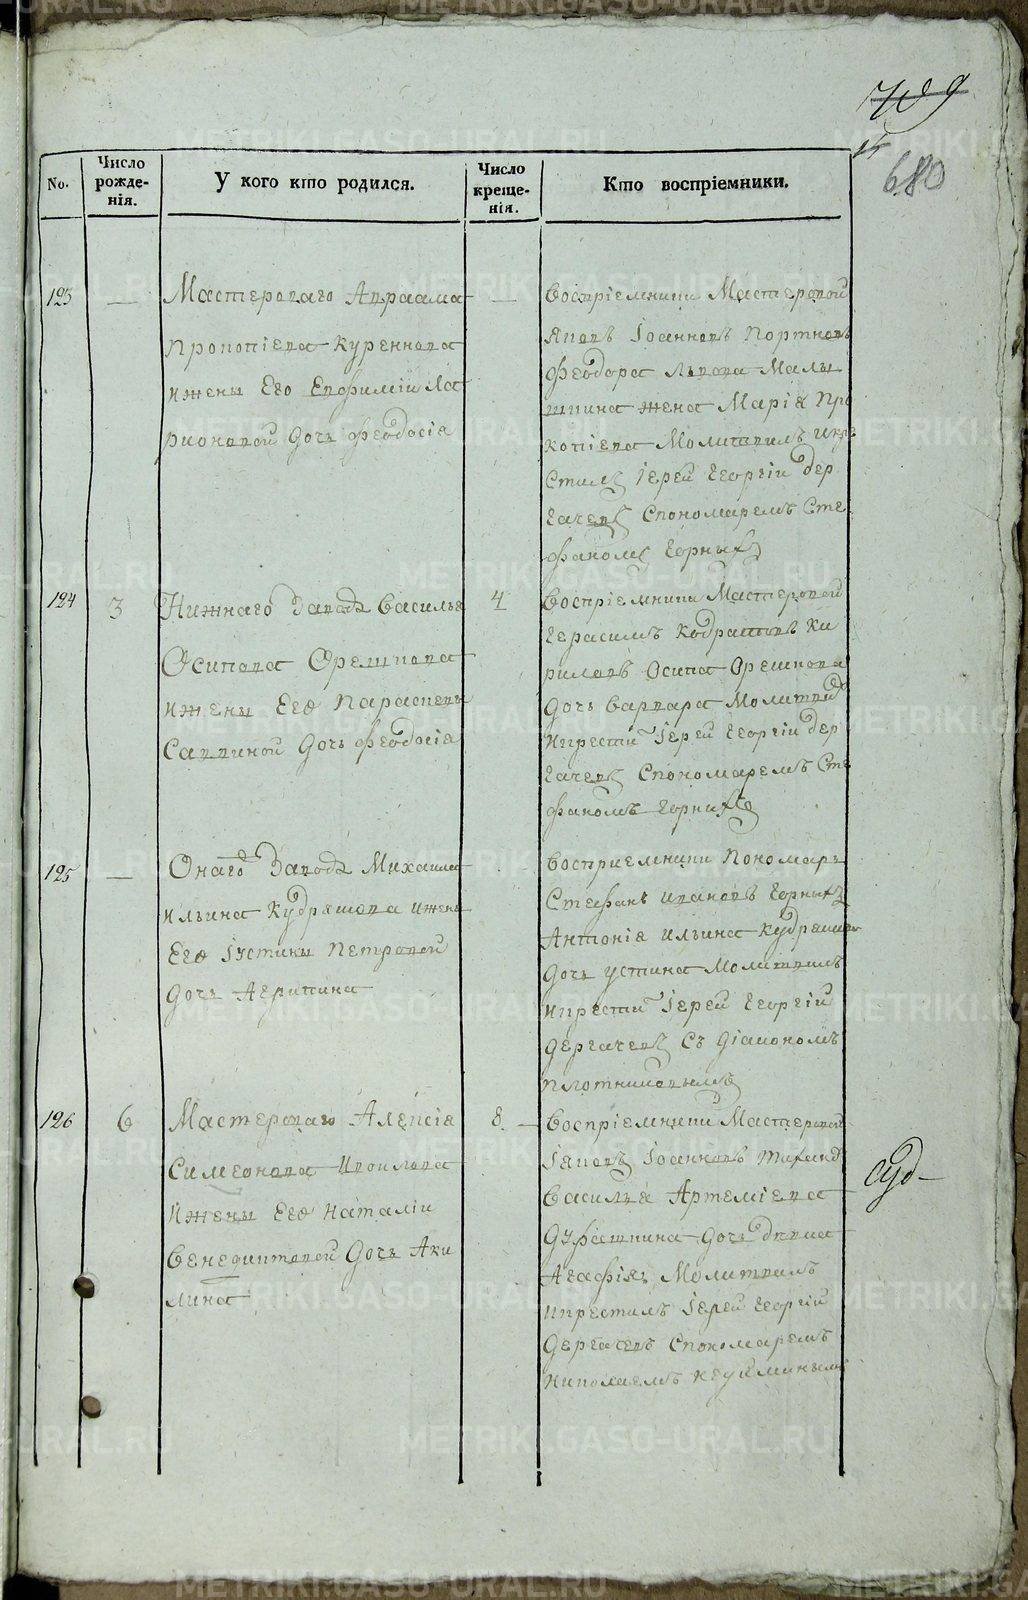 709
15
680
No.
Число рожде-нія.
У кого кто родился.
Число креще-нія.
Кто воспріемники.
123 — Мастероваго Авраама
Прокопіева Куреннова
ижены Его Евфиміи Ла
рионовой Дочь Феодосія
—
воспріемники Мастеровой
Яковъ Іоанновъ Портновъ
Феодора Львова Малы
шкина жена Марія Про
копіева Молитвилъ икре
стилъ Іерей Георгій Дер
гачевъСпономаремъ Сте
фаномъ Горныхъ
124 3 Нижнаго Завода Василья
Осипова Орешкова
ижены Его Параскевы
Саввиной Дочь Феодосія
4
воспріемники Мастеровой
Герасимъ Кодратовъ Ки
риловъ Осипа Орешкова
Дочь Варвара Молитвил
икрести Іерей Георгій Дер
гачевъ Спономаремъ Сте
фаномъ Горныхъ
125 — Онаго Завода Михаила
Ильина Кудряшова ижены
Его Іустины Петровой
Дочь Агрипина
восприемники Пономарь
Стефанъ Ивановъ Горныхъ
Антонія Ильина Кудряшова
Дочь Устина Молитвилъ
икрести Іерей Георгій
Дергачевъ Съ Діакономъ
Плотниковымъ
126 6 Мастероваго Алексія
Симеонова Ивоилова
Ижены Его Наталіи
Венедиктовой Дочь Аки
лина
8 —
воспріемники Мастеровой
Іаковъ Іоанновъ
Василья Артеміева
Дочь Девка
Агафія Молитвилъ
икрестилъ Іерей Георгій
Дергачевъ Спономаремъ
Николаемъ